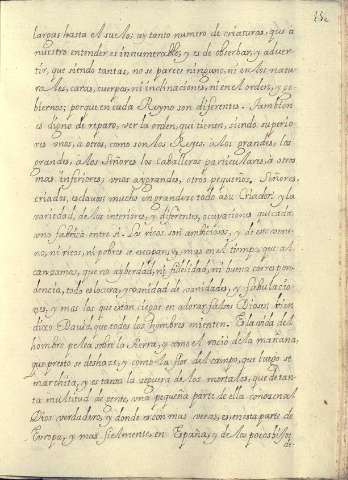 largas hasta el suelo; ay tanto numero de criaturas, que a
nuestro entender es innumerable; y es de obserbar, y advertir,
que siendo tantas, no se parece ninguno, ni en los naturales,
caras, cuerpos, ni inclinaciones, ni en el orden, y gobiernos;
porque en cada Reyno son diferentes. Tambien
es digno de reparo, ver la orden, que tienen, siendo superiores
unos, a otros, como son los Reyes, a los grandes, los
grandes, a los Señores los caballeros particulares, a otros
mas inferiores; unos ay grandes, otros pequeños, Señores,
criados, esclavos; mucho engrandece todo a su Criador; y la
variedad, de los interiores, y diferentes, ocupaciones que cada
uno fabrica entre si. Los ricos son ambiciosos, y de este comun,
ni ricos, ni pobres se escapan, y mas en el tiempo, que alcanzamos,
que no ay verdad, ni fidelidad, ni buena correspondencia,
todo es locura, y vanidad de vanidades, y fabulaciones,
y mas los que estan ciegos en adorar falsos Dioses; bien
dixo David, que todos los hombres mienten. Es la vida del
hombre pelea sobre la tierra, y como el rocio de la mañana,
que presto se deshace, y como la flor del campo, que luego se
marchita, y es tanta la zeguera de los mortales, que de tanta
multitud de gente, una pequeña parte de ella conocen al
Dios verdadero, y donde es con mas veras, es en esta parte de
Europa, y mas fielmente, en España, y de los pocos hijos
de